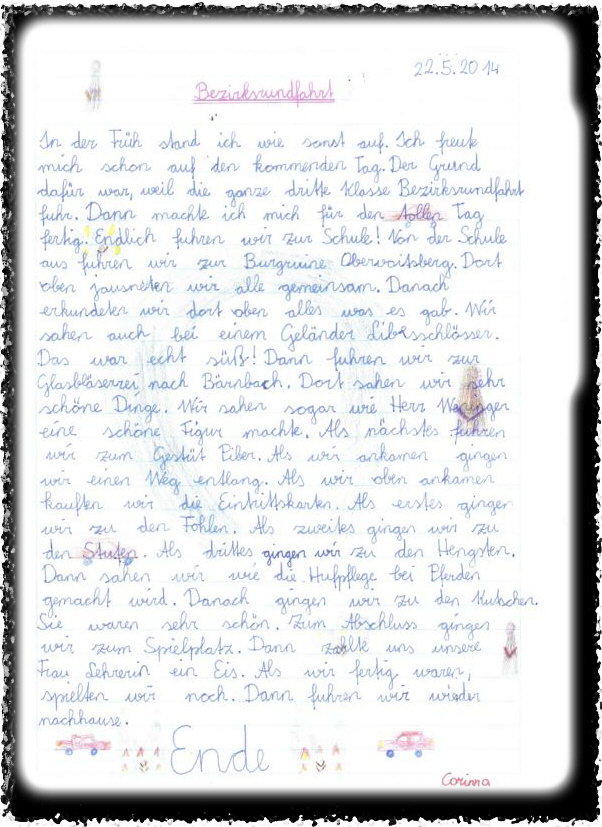 22.5.2014
Bezirksrundfahrt
In der Früh stand ich wie sonst auf. Ich freute
mich schon auf den kommenden Tag. Der Grund
dafür war, weil die ganze dritte Klasse Bezirksrundfahrt
fuhr. Dann machte ich mich für den tollen Tag
fertig. Endlich fuhren wir zur Schule! Von der Schule
aus fuhren wir zur Burgruine Obervoitsberg. Dort
oben jausneten wir alle gemeinsam. Danach
erkundeten wir dort oben alles was es gab. Wir
sahen auch bei einem Geländer Libesschlösser.
Das war echt süß! Dann fuhren wir zur
Glasbläserrei nach Bärnbach. Dort sahen wir sehr
schöne Dinge. Wir sahen sogar wie Herr
eine schöne Figur machte. Als nächstes fuhren
wir zum Gestüt Piber. Als wir ankamen gingen
wir einen Weg entlang. Als wir oben ankamen
kauften wir die Eintrittskarten. Als erstes gingen
wir zu den Fohlen. Als zweites gingen wir zu
den Stuten. Als drittes gingen wir zu den Hengsten.
Dann sahen wir wie die Hufpflege bei Pferden
gemacht wird. Danach gingen wir zu den Kutschen.
Sie waren sehr schön. Zum Abschluss gingen
wir zum Spielplatz. Dann zahlte uns unsere
Frau Lehrerin ein Eis. Als wir fertig waren,
spielten wir noch. Dann fuhren wir wieder
nachhause.
Ende
Corinna